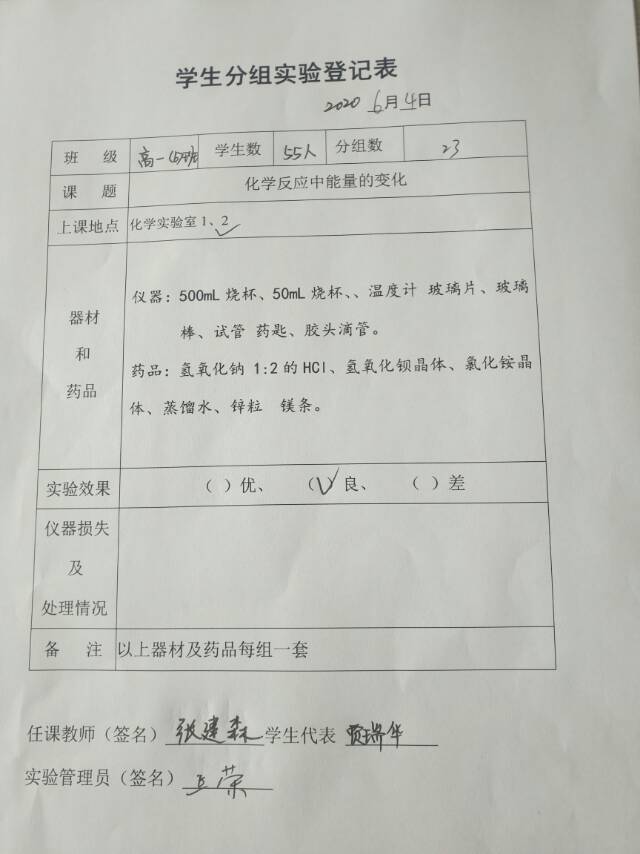 学生分组实验登记表
2020 6月4日
班 级 高一 学生数 55人 分组数 23
课 题 化学反应中能量的变化
上课地点 化学实验室1、2 ✓
器材
和
药品
仪器：500mL烧杯、50mL烧杯、、温度计 玻璃片、玻璃
棒、试管 药匙、胶头滴管。
药品：氢氧化钠 1:2的HCl、氢氧化钡晶体、氯化铵晶
体、蒸馏水、锌粒 镁条。
实验效果 （ ）优、 （✓）良、 （ ）差
仪器损失
及
处理情况
备 注 以上器材及药品每组一套
任课教师（签名） 张建森 学生代表 贾瑞华
实验管理员（签名） 王荣